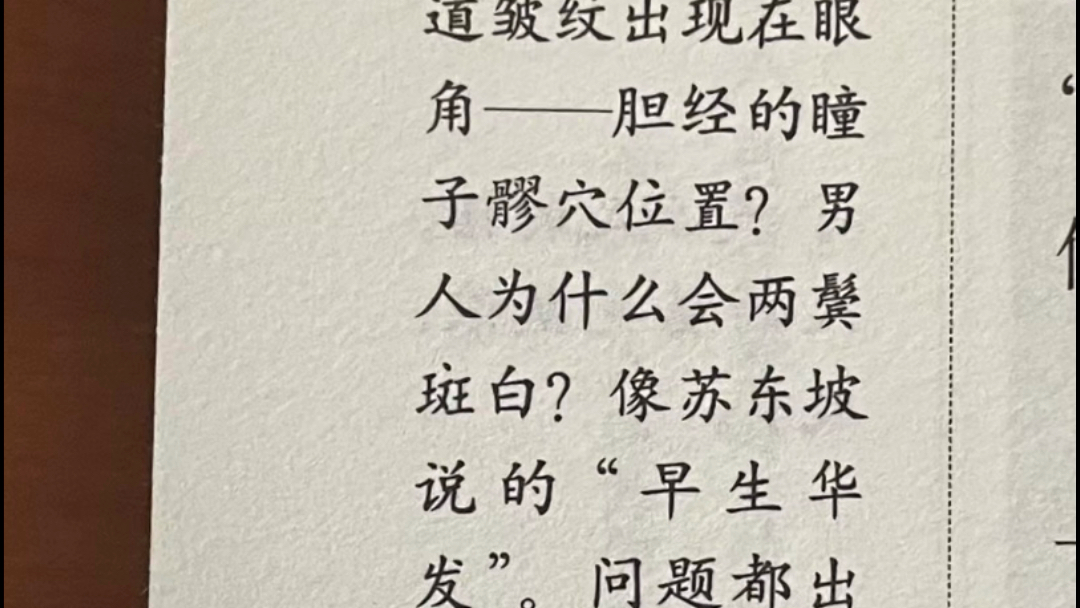 道皱纹出现在眼
角——胆经的瞳
子髎穴位置？男
人为什么会两鬓
斑白？像苏东坡
说的“早生华
发”。问题都出